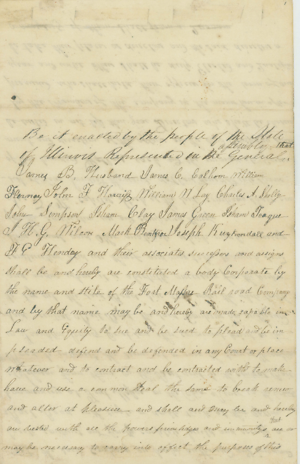 Be it enacted by the people of the State
of Illinois Represented in the General
assembly that
James B. Husband James C. Calhoun William
Kinney John F. William N. Ley Charles A.
John Simpson Isham Clay James Green Isham Teague
J. M. G. Wilson Mark Joseph Kuykendall and
W. P. Horday and their associates survivors and assigns
shall be and hereby are constituted a body Corporate by
the name and stile of the Fort Rail road Company
and by that name may be and hereby are made capable in
Law and Equity to sue and be sued to plead and be im
pleaded defend and be defended in any Court or place
whatever and to contract and be contracted with to make
have and use a common Seal the same to break renew
and alter at pleasure and shall and may be and hereby
are vested with all the powers privileges and immunities
may be necessary to carry into effect the purposes of this